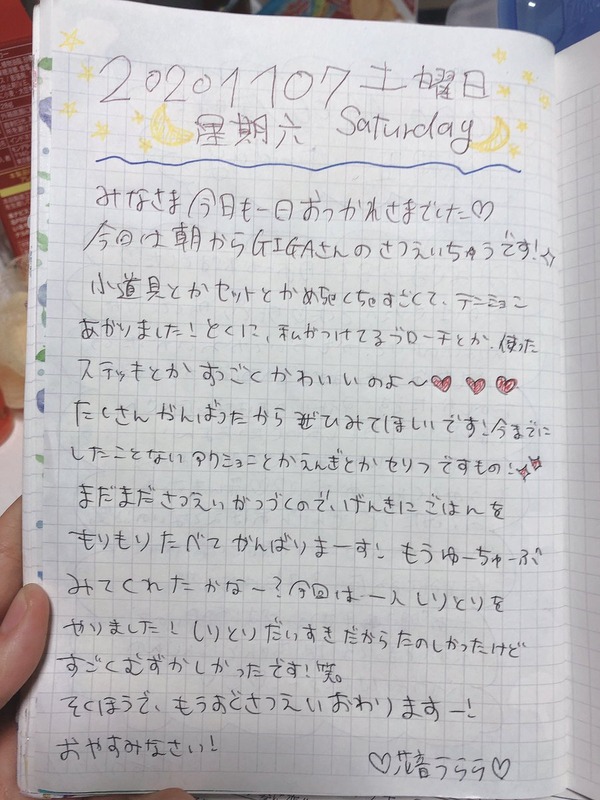 20201107 土曜日
星期六 Saturday
みなさま今日も一日おつかれさまでした♡
今日は朝からGIGAさんのさつえいちゅうです!☆
小道具とかセットとかめちゃくちゃすごくて、テンション
あがりました!とくに、私がつけてるブローチとか、使った
ステッキとかすっごくかわいいのよ〜♥ ♥ ♥
たくさんがんばったからぜひみてほしいです!今までに
したことないアクションとかえんぎとかセリフですもの!
まだまださつえいがつづくので、げんきにごはんを
もりもりたべてがんばりまーす! もうゆーちゅーぶ
みてくれたかなー?今回は一人しりとりを
やりました!しりとりだいすきだからたのしかったけど
すごくむずかしかったです!笑。
そくほうで、もうあとさつえいおわりますー!
おやすみなさい!
♡花音うらら♡